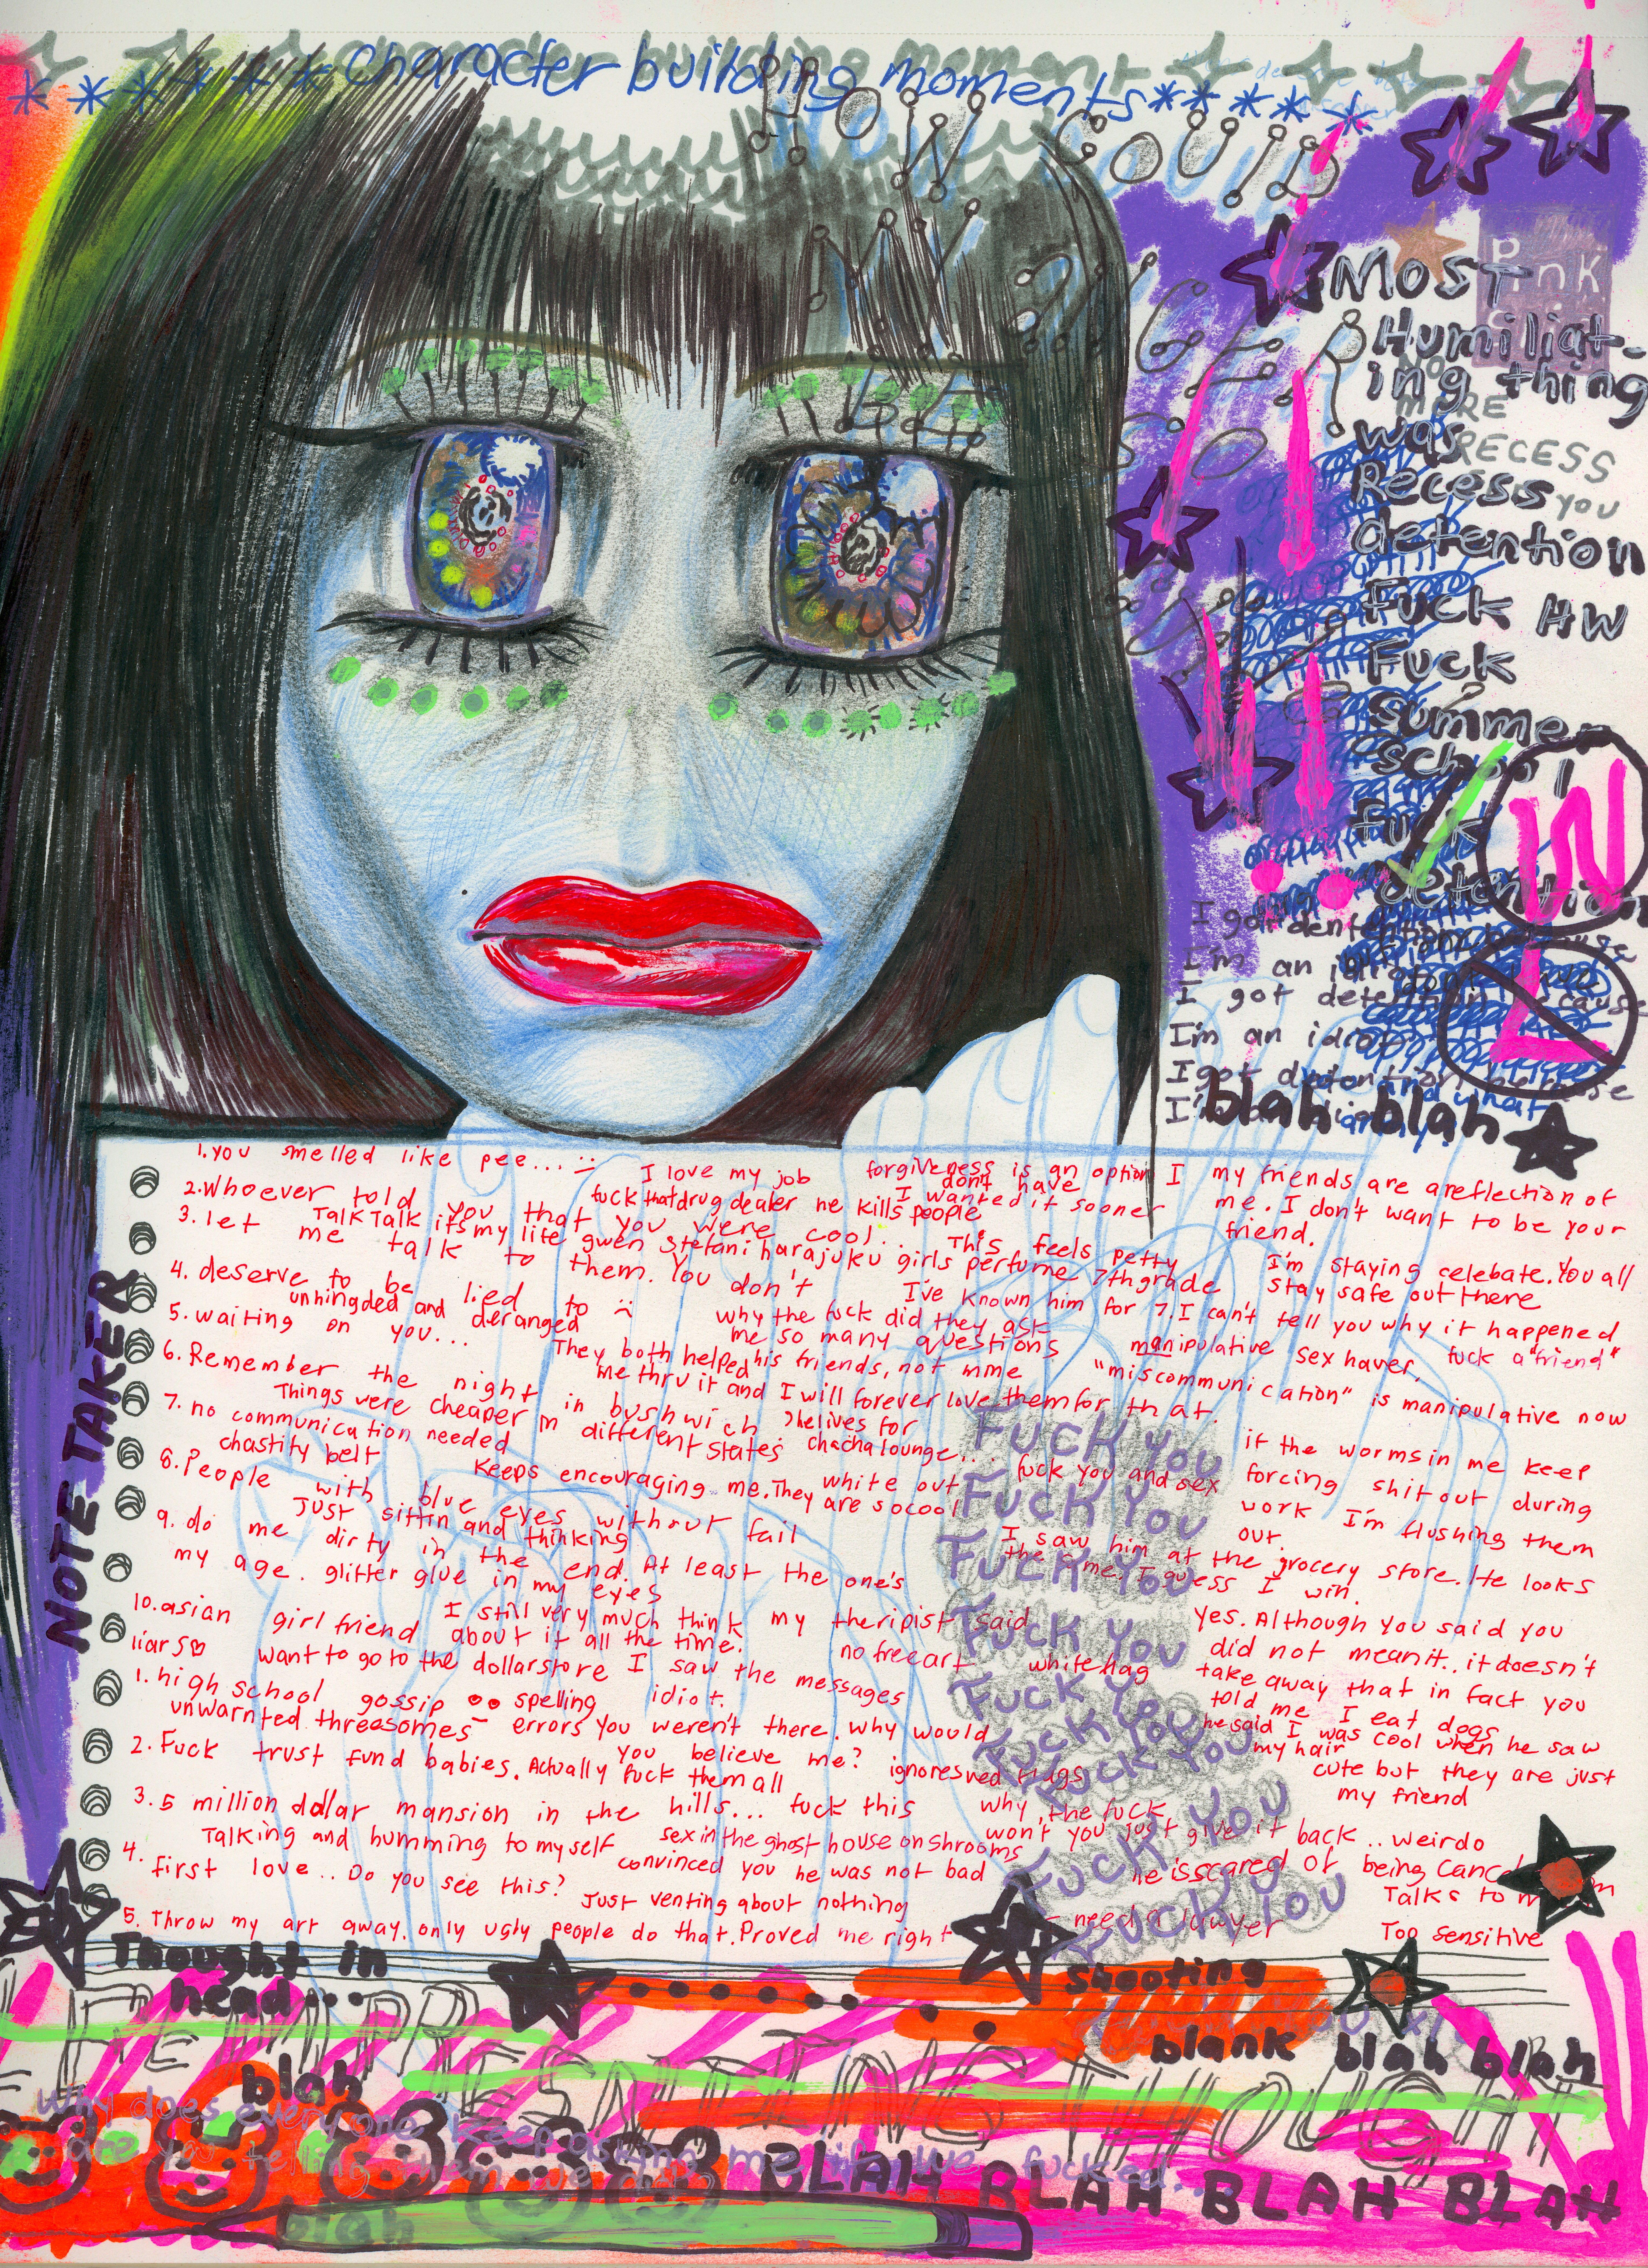 character building moments
character building moment
HOW COULD
MY ANGER
BE
Most
Humiliat-
ing thing
was
Recess
detention
Fuck HW
Fuck
Summe-
school
Fuck
detention
pink
NO
MORE
RECESS
YOU
W
L
I got detention because
I'm an idiot
I got detention because
I'm an idiot
I got detention because
blah blah
NOTE TAKER
1. you smelled like pee...
I love my job
forgiveness is an option I
don't have
my friends are a reflection of
me. I don't want to be your
friend.
2. Whoever told you that you were cool..
fuck that drug dealer he kills people
I wanted it sooner
Talk Talk it's my life gwen stefani harajuku girls perfume 7th grade
This feels petty
3. let me talk to them. You don't
I'm staying celebate. You all
stay safe out there
4. deserve to be lied to
unhingded and deranged
I've known him for 7. I can't tell you why it happened
why the fuck did they ask
me so many questions
5. waiting on you...
manipulative sex haver,
fuck a "friend"
They both helped
me thru it and I will forever love them for that.
his friends, not mme
"miscommunication" is manipulative now
6. Remember the night in bushwich
Things were cheaper in different states
he lives for
chacha lounge...
7. no communication needed
chastity belt
Keeps encouraging me. They are so cool
white out
fuck you and sex
work
if the worms in me keep
forcing shit out during
I'm flushing them
out.
8. People with blue eyes without fail
Just sittin and thinking
9. do me dirty in the end. At least the one's
my age. glitter glue in my eyes
I saw him at the grocery store. He looks
the same. I guess I win.
10. asian girlfriend
I still very much think
about it all the time.
my theripist said
no free art
white flag
Yes. Although you said you
did not mean it.. it doesn't
take away that in fact you
told me I eat dogs
liars
want to go to the dollarstore I saw the messages
1. high school gossip
spelling
errors
idiot.
unwarnted threesomes
you weren't there. Why would
you believe me?
ignores red flags
he said I was cool when he saw
my hair
cute but they are just
my friend
2. Fuck trust fund babies. Actually fuck them all
3. 5 million dollar mansion in the hills... fuck this
why the fuck
won't you just give it back .. weirdo
Talking and humming to myself
sex in the ghost house on shrooms
convinced you he was not bad
he is scared of being
Talks to
4. first love.. Do you see this?
Just venting about nothing
5. Throw my art away. only ugly people do that. Proved me right
need a lawyer
Too sensitive
FUCK YOU
FUCK YOU
FUCK YOU
FUCK YOU
FUCK YOU
FUCK YOU
FUCK YOU
FUCK YOU
FUCK YOU
Thought in
head...
shooting
blank blah blah
REPRESENTING THOUGHT
blah
Why does everyone keep asking me if we fucked..
are you telling them we did?
BLAH BLAH BLAH BLAH
blah